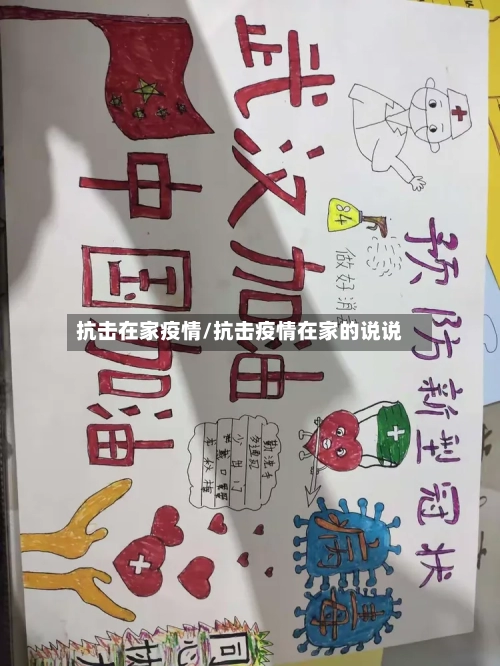 预防新型冠状
病毒
武汉加油
中国加油
84
做好消
勤洗手
多通风
少出门
戴口罩
抗击在家疫情/抗击疫情在家的说说
同心